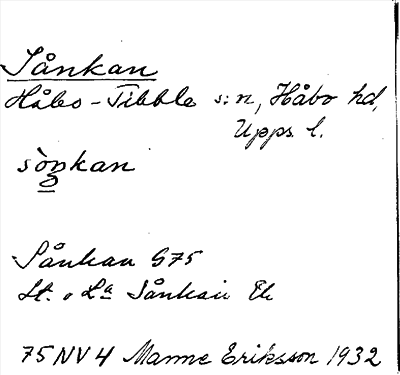 Sånkan
Håbo-Tibble s:n, Håbo hd,
Upps. l.
sòŋkan
Sånkan G75
St. o La Sånkan Ek
75 NV 4 Manne Eriksson 1932